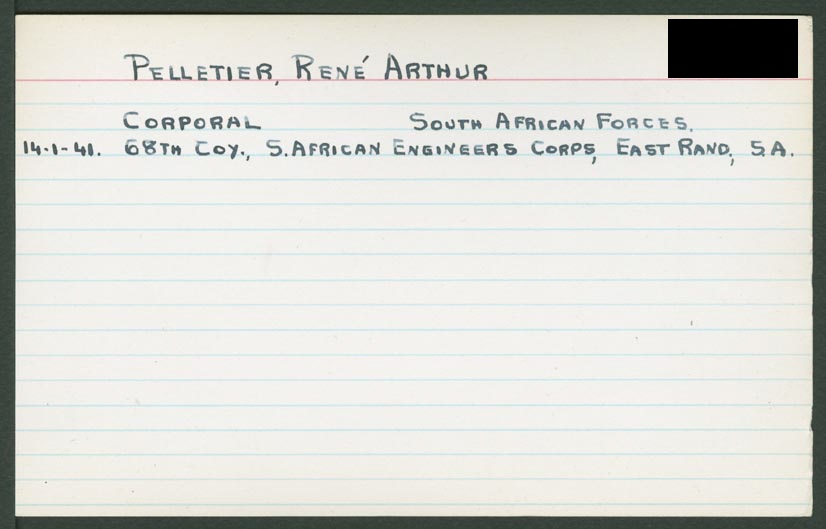 PELLETIER, RENÉ ARTHUR
CORPORAL SOUTH AFRICAN FORCES.
14-1-41. 68TH COY., S. AFRICAN ENGINEERS CORPS, EAST RAND, S.A.